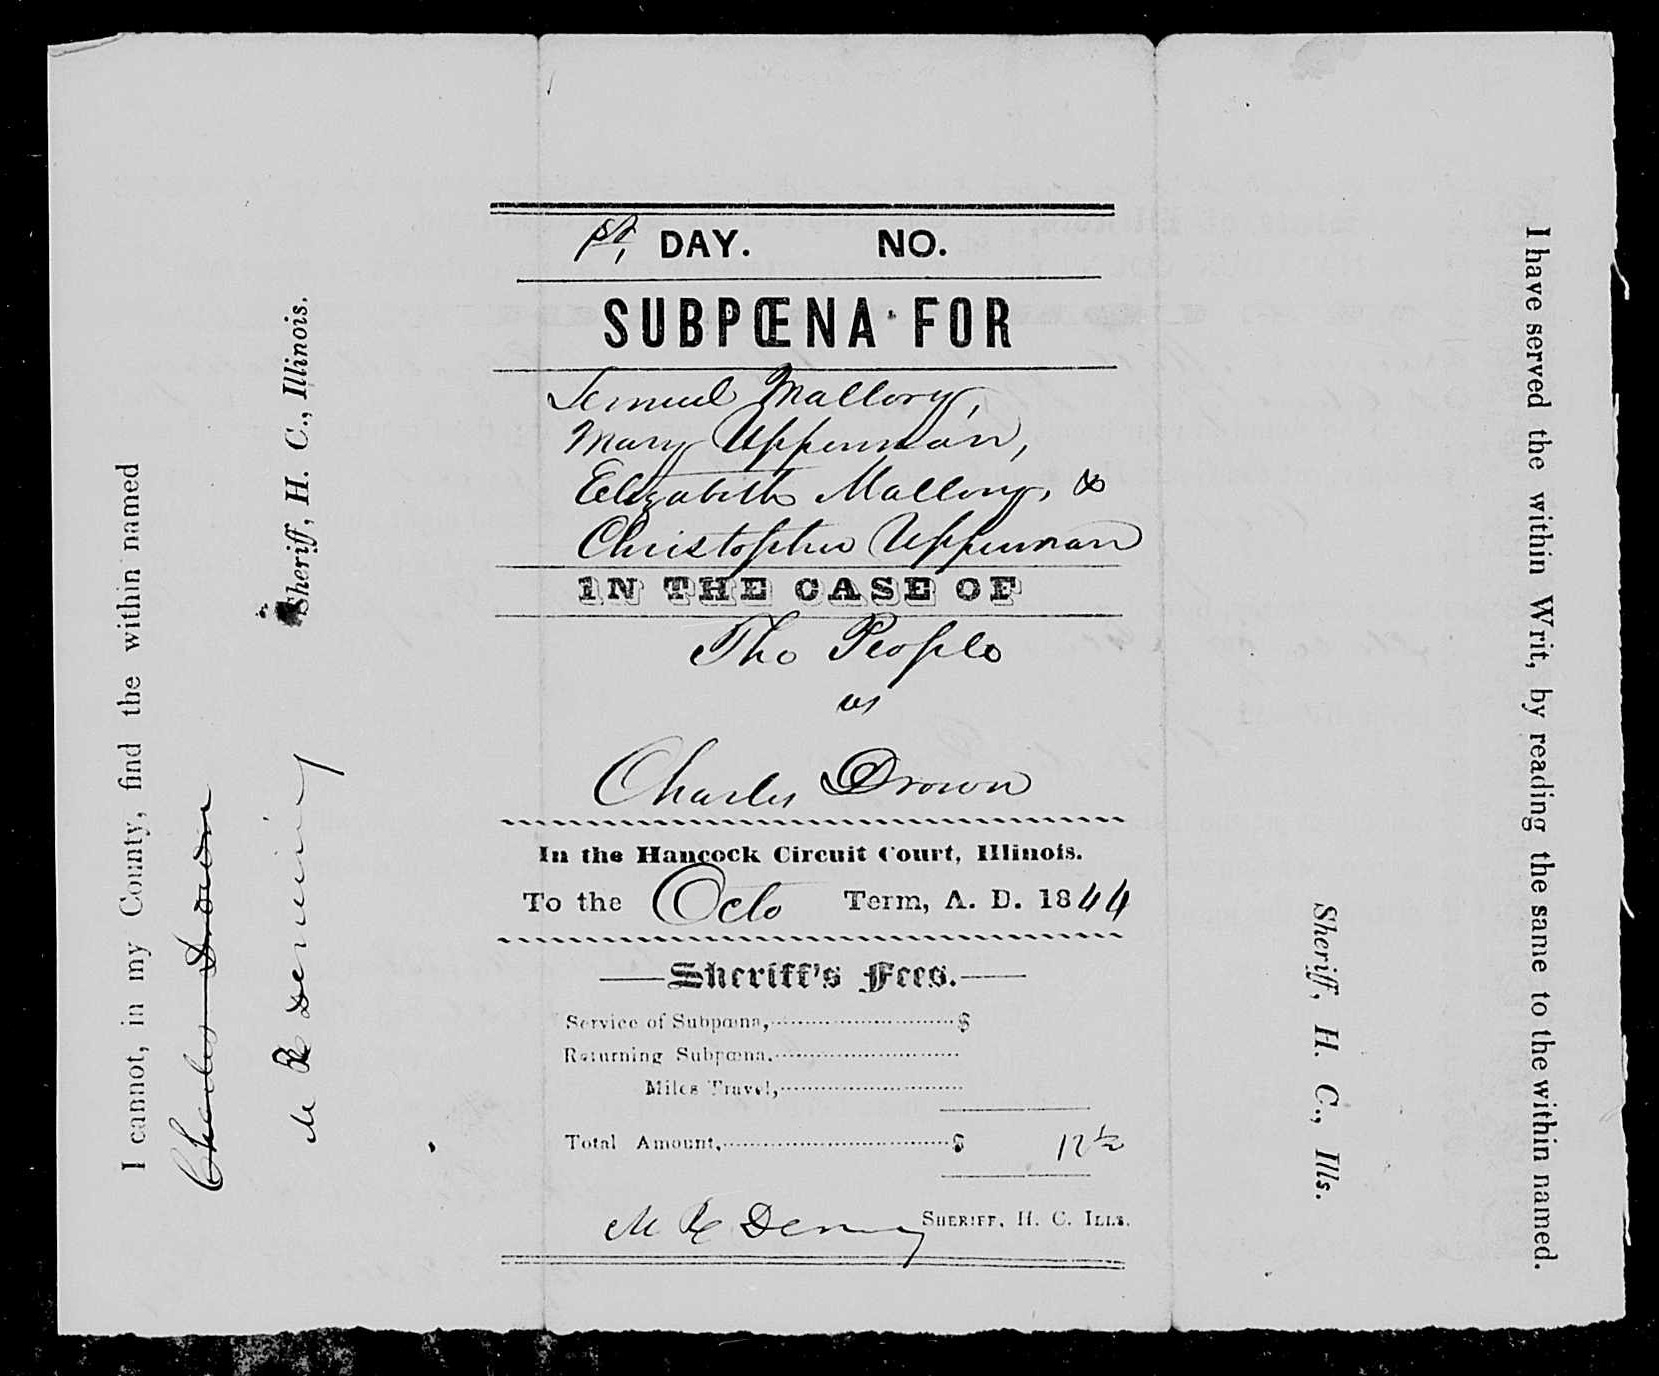 I cannot, in my County, find the within named
Charles Drown
M R Deming
Sheriff, H. C., Illinois.
1st, DAY. NO.
SUBPŒNA FOR
Lemuel Mallory,
Mary Upperman,
Elizabeth Mallory, &
Christopher Upperman
IN THE CASE OF
The People
vs
Charles Drown
In the Hancock Circuit Court, Illinois.
To the Octo Term, A. D. 1844
Sheriff's Fees.
Service of Subpœna, $
Returning Subpœna.
Miles Travel,
Total Amount, $ 12 1/2
M R Deming SHERIFF, H. C. ILLS.
I have served the within Writ, by reading the same to the within named.
Sheriff, H. C., Ills.